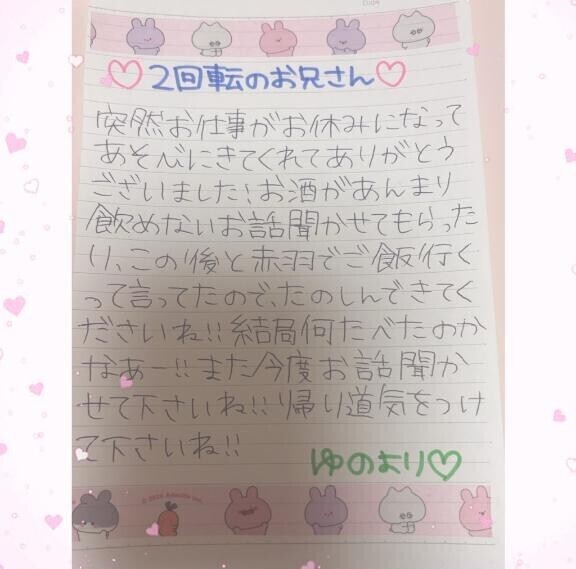 ♡2回転のお兄さん♡
突然お仕事がお休みになって
あそびにきてくれてありがとう
ございました!お酒があんまり
飲めないお話聞かせてもらった
り、この後と赤羽でご飯行く
って言ってたので、たのしんできてく
ださいね!!結局何たべたのか
なあー!!また今度お話聞か
せて下さいね!!帰り道気をつけ
て下さいね!!
ゆのより♡